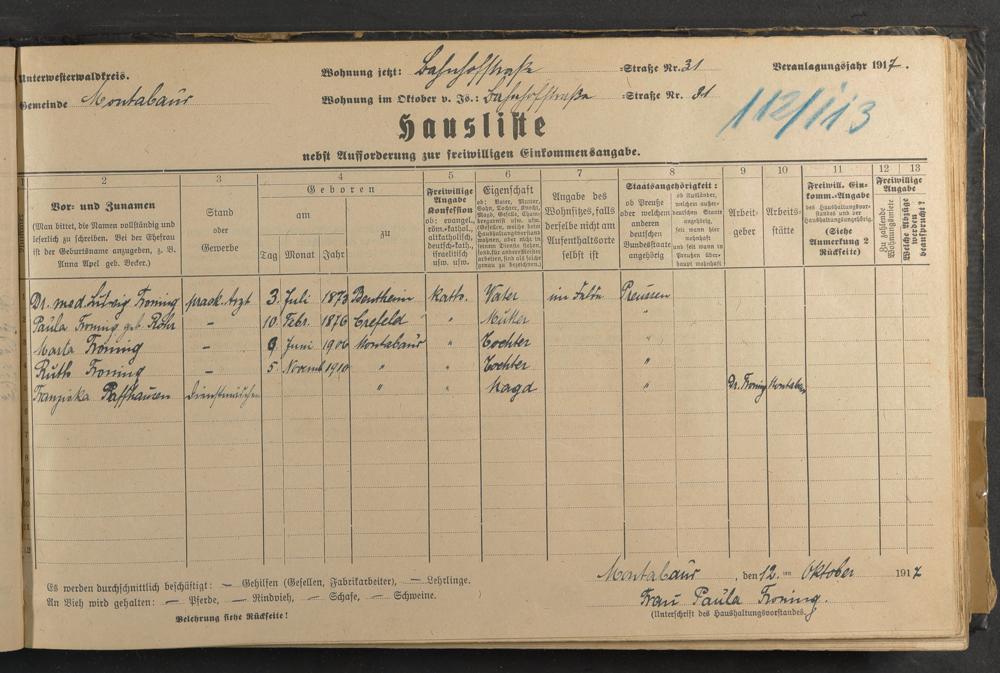 Unterwesterwaldkreis.
Gemeinde Montabaur
Wohnung jetzt: Bahnhofstraße =Straße Nr. 31
Wohnung im Oktober v. Js.: Bahnhofstraße =Straße Nr. 31
Veranlagungsjahr 1917.
112/113
Hausliste
nebst Aufforderung zur freiwilligen Einkommensangabe.
2 3 4 5 6 7 8 9 10 11 12 13
Vor- und Zunamen
(Man bittet, die Namen vollständig und
leserlich zu schreiben. Bei der Ehefrau
ist der Geburtsname anzugeben, z. B.
Anna Apel geb. Becker.)
Stand
oder
Gewerbe
Geboren
am
zu
Tag Monat Jahr
Freiwillige
Angabe
Konfession
ob: evangel.,
röm.-kathol.,
altkatholisch,
deutsch-kath.,
israelitisch
usw. usw.
Eigenschaft
ob: Vater, Mutter,
Sohn, Tochter, Knecht,
Magd, Geselle,
Angabe des
Wohnsitzes, falls
derselbe nicht am
Aufenthaltsorte
selbst ist
Staatsangehörigkeit:
ob Preuße
oder welchem
anderen
deutschen
Bundesstaate
angehörig
ob Ausländer,
welchem außer-
deutschen Staate
angehörig,
seit wann hier
wohnhaft
und seit wann in
Preußen über-
haupt wohnhaft
Arbeit-
geber
Arbeits-
stätte
Freiwill. Ein-
komm.-Angabe
des Haushaltungsvor-
standes und der
Haushaltungsangehörig.
(Siehe
Anmerkung 2
Rückseite)
Freiwillige
Angabe
Zu zahlende
Wohnungsmiete
Welche Abzüge
werden
beansprucht?
Dr. med. Ludwig Froning prakt. Arzt 3. Juli 1873 Bentheim kath. Vater im Felde Preussen
Paula Froning geb. Rohr – 10. Febr. 1876 Crefeld " Mutter "
Marla Froning – 9. Juni 1906 Montabaur " Tochter "
Ruth Froning – 5. Novemb 1910 " " Tochter "
Franziska Paffhausen Dienstmädchen " Magd " Dr. Froning Montabaur
Es werden durchschnittlich beschäftigt: – Gehilfen (Gesellen, Fabrikarbeiter), – Lehrlinge.
An Vieh wird gehalten: – Pferde, – Rindvieh, – Schafe, – Schweine.
Belehrung siehe Rückseite!
Montabaur, den 12. ten Oktober 1917
Frau Paula Froning.
(Unterschrift des Haushaltungsvorstandes.)